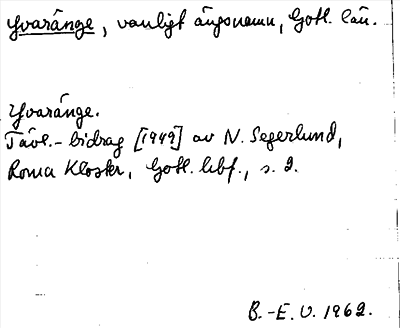 Yvaränge, vanligt ängsnamn, Gotl. län.
Yvaränge.
Tävl.-bidrag [1949] av N. Segerlund,
Roma Kloster, Gotl. hbf., s. 2.
B.-E. U. 1962.